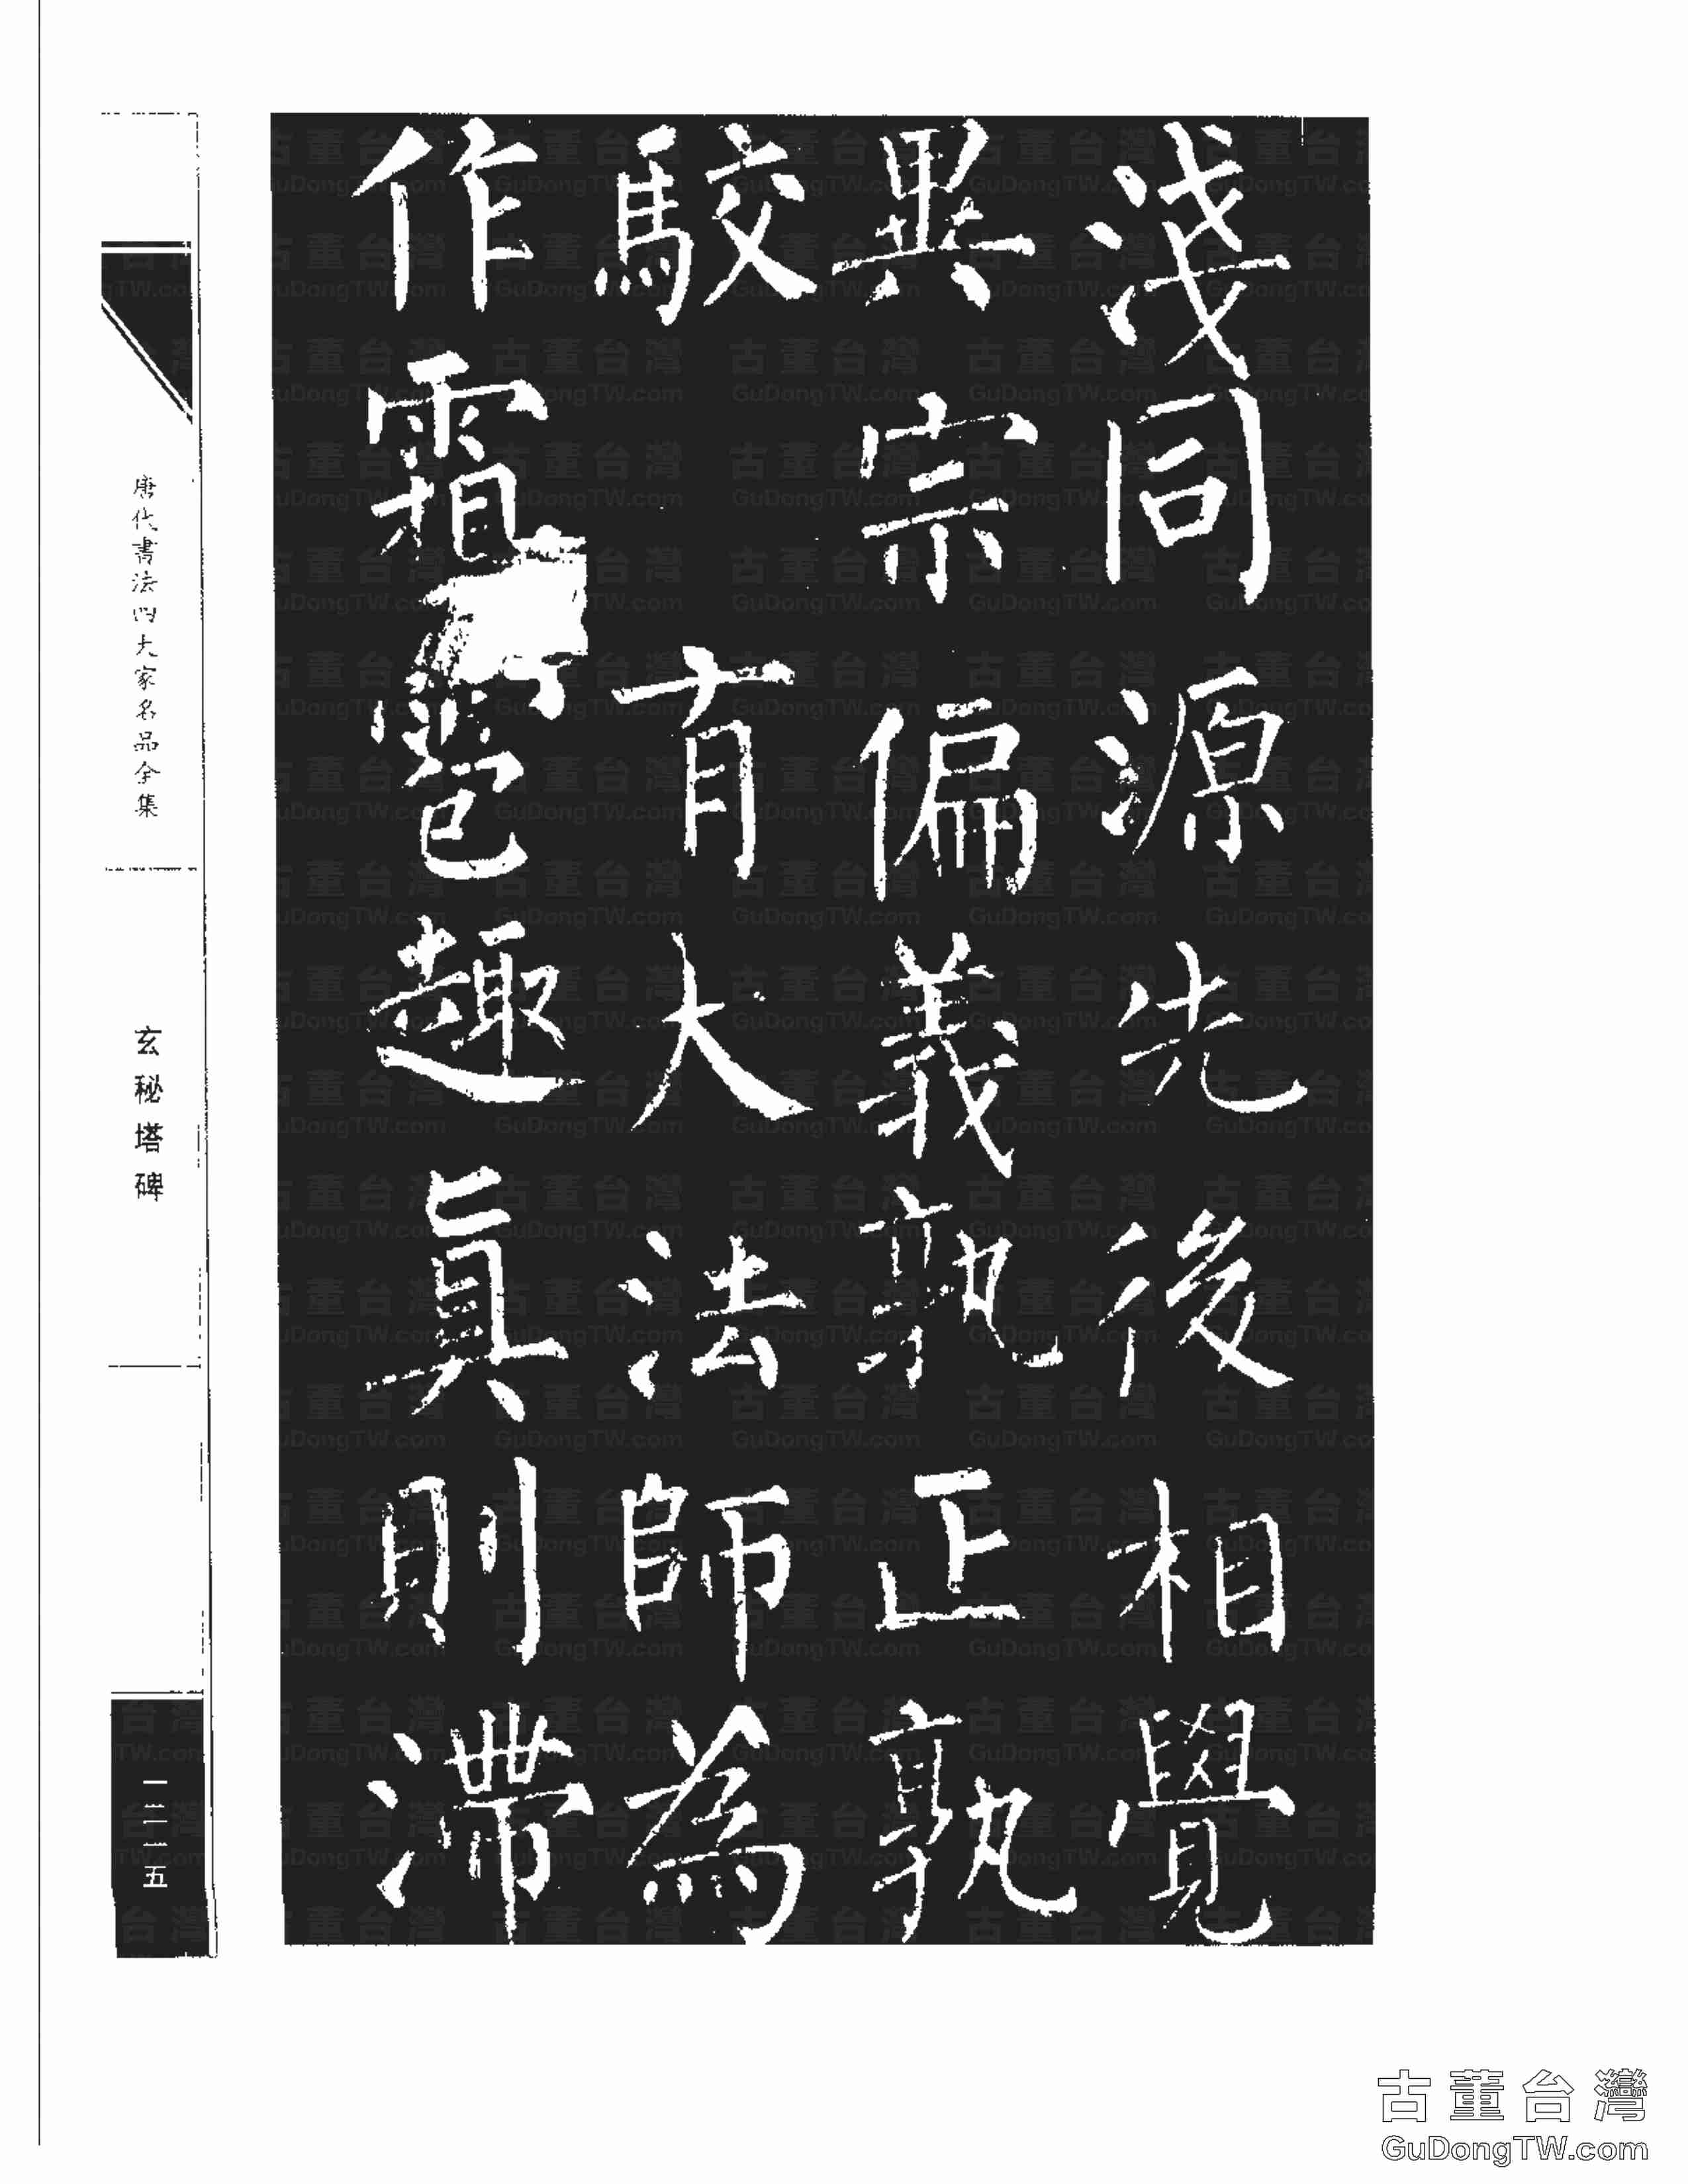 淺同源先後相覺
異宗偏義孰正孰
駮有大法師為
作霜雹趣真則滯
唐代書法四大家名品全集
玄秘塔碑
古董台灣
GuDongTW.com